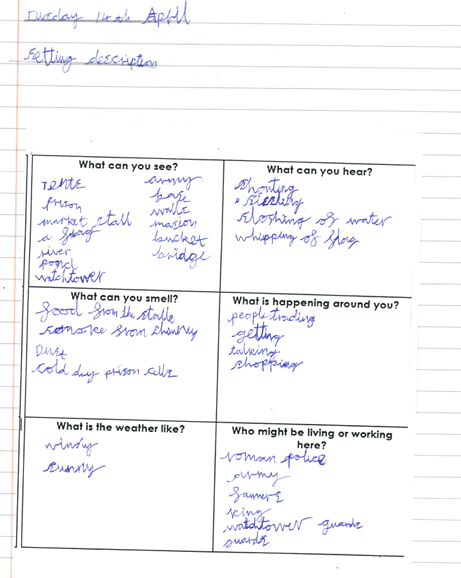 Tuesday 14th April
Setting description
What can you see?
Tents
prison
market stall
a flag
river
pond
watchtower
army
base
walls
bucket
bridge
What can you hear?
Shouting
sloshing of water
whipping of flag
What can you smell?
food from the stalls
smoke from chimney
Dust
cold dry prison cells
What is happening around you?
people trading
getting
talking
shopping
What is the weather like?
windy
sunny
Who might be living or working
here?
roman police
army
farmers
king
watchtower guards
guards